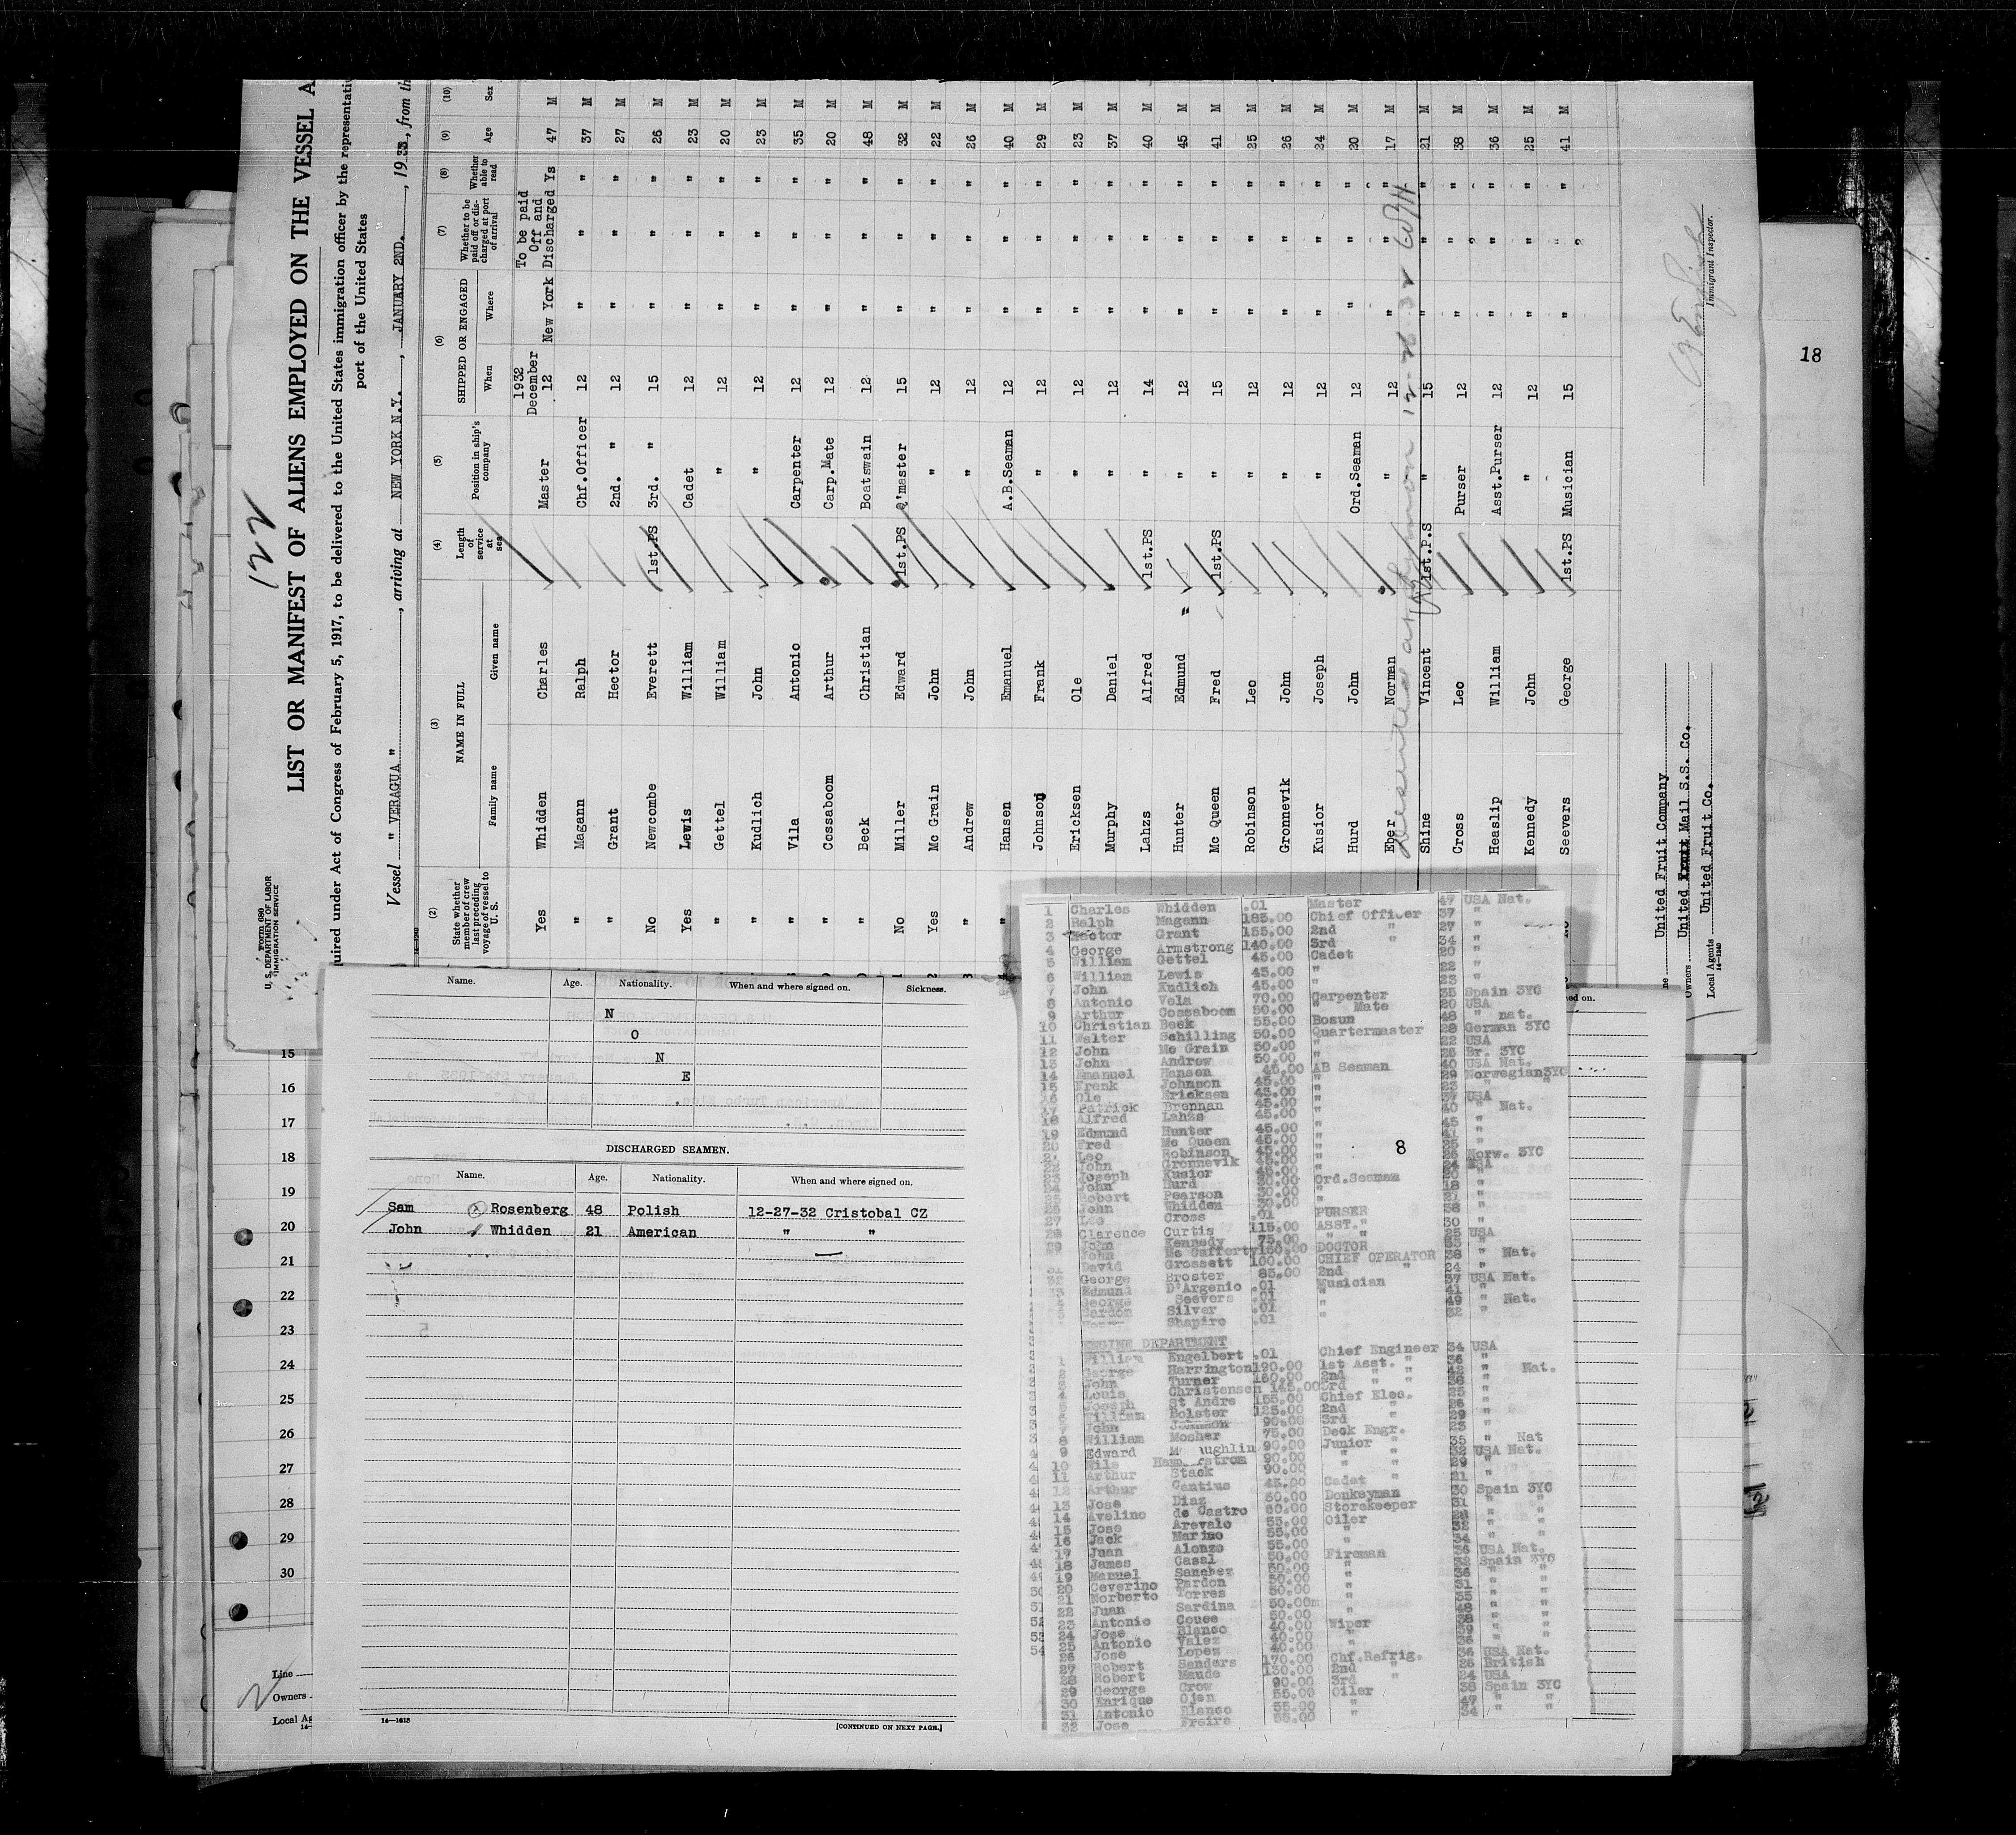 122
Form 680
U. S. DEPARTMENT OF LABOR
IMMIGRATION SERVICE
LIST OR MANIFEST OF ALIENS EMPLOYED ON THE VESSEL A
quired under Act of Congress of February 5, 1917, to be delivered to the United States immigration officer by the representativ
port of the United States
Vessel " VERAGUA ", arriving at NEW YORK N.Y., JANUARY 2ND., 1933, from th
(2) (3) (4) (5) (6) (7) (8) (9) (10)
State whether member of crew last preceding voyage of vessel to U. S.
NAME IN FULL
Family name Given name
Length of service at sea
Position in ship's company
SHIPPED OR ENGAGED
When Where
Whether to be paid off or discharged at port of arrival
Whether able to read
Age Sex
1932 To be paid
December Off and
Yes Whidden Charles Master 12 New York Discharged Ys 47 M
" Magann Ralph Chf.Officer 12 " " " 37 M
" Grant Hector 2nd. " 12 " " " 27 M
No Newcombe Everett 1st.PS 3rd. " 15 " " " 26 M
Yes Lewis William Cadet 12 " " " 23 M
" Gettel William " 12 " " " 20 M
" Kudlich John " 12 " " " 23 M
" Vila Antonio Carpenter 12 " " " 35 M
" Cossaboom Arthur Carp.Mate 12 " " " 20 M
" Beck Christian Boatswain 12 " " " 48 M
No Miller Edward 1st.PS Q'master 15 " " " 32 M
Yes Mc Grain John " 12 " " " 22 M
" Andrew John " 12 " " " 26 M
" Hansen Emanuel A.B.Seaman 12 " " " 40 M
Johnson Frank " 12 " " " 29 M
Ericksen Ole " 12 " " " 23 M
Murphy Daniel " 12 " " " 37 M
Lahzs Alfred 1st.PS " 14 " " " 40 M
Hunter Edmund " 12 " " " 45 M
Mc Queen Fred 1st.PS " 15 " " " 41 M
Robinson Leo " 12 " " " 25 M
Gronnevik John " 12 " " " 26 M
Kusior Joseph " 12 " " " 24 M
Hurd John Ord.Seaman 12 " " " 20 M
Eber Norman " 12 " " " 17 M
Shine Vincent 1st.P.S " 15 " " " 21 M
Cross Leo Purser 12 " " " 38 M
Heaslip William Asst.Purser 12 " " " 36 M
Kennedy John " 12 " " " 25 M
Seevers George 1st.PS Musician 15 " " " 41 M
United Fruit Company
Owners United Mail S.S. Co.
Local Agents United Fruit Co.
14-1240
Immigrant Inspector.
18
15
16
17
18
19
20
21
22
23
24
25
26
27
28
29
30
Line
Owners
Local Ag
Name. Age. Nationality. When and where signed on. Sickness.
N
O
N
E
DISCHARGED SEAMEN.
Name. Age. Nationality. When and where signed on.
Sam Rosenberg 48 Polish 12-27-32 Cristobal CZ
John Whidden 21 American " "
14—1618
[CONTINUED ON NEXT PAGE.]
8
1 Charles Whidden .01 Master 47 USA Nat.
2 Ralph Magann 185.00 Chief Officer 37 "
3 Hector Grant 155.00 2nd " 27 "
4 George Armstrong 140.00 3rd " 34 "
5 William Gettel 45.00 Cadet 20 "
6 William Lewis 45.00 " 22 "
7 John Kudlich 45.00 " 23 "
8 Antonio Vela 70.00 Carpenter 35 Spain 3YC
9 Arthur Cossaboom 50.00 " Mate 20 USA
10 Christian Beck 55.00 Bosun 48 " nat.
11 Walter Schilling 50.00 Quartermaster 28 German 3YC
12 John Mc Grain 50.00 " 22 USA
13 John Andrew 50.00 " 26 Br. 3YC
14 Emanuel Hansen 45.00 AB Seaman 40 USA Nat.
15 Frank Johnson 45.00 " 29 Norwegian3YC
16 Ole Ericksen 45.00 " 23 " "
17 Patrick Brennan 45.00 " 37 USA
18 Alfred Lahzs 45.00 " 40 " Nat.
19 Edmund Hunter 45.00 " 45 "
20 Fred Mc Queen 45.00 " 41 "
Leo Robinson 45.00 " 25 "
John Gronnevik 45.00 " 26 Norw. 3YC
Joseph Kusior 45.00 " 24 USA
John Hurd 30.00 Ord.Seaman 20 "
Robert Pearson 30.00 " 18 "
John Whidden 30.00 " 21 "
27 Leo Cross .01 PURSER 38 "
28 Clarence Curtis 115.00 ASST." 30 "
29 John Kennedy 75.00 " " 25 USA
John Mc Cafferty 160.00 DOCTOR
David Grossett 100.00 CHIEF OPERATOR 38 " Nat.
George Broster 85.00 2nd " 24 "
Edmund D'Argenio .01 Musician 37 USA Nat.
George Seevers .01 " 41 "
Gordon Silver .01 " 49 " Nat.
Shapiro .01 " 32 "
ENGINE DEPARTMENT
1 William Engelbert .01 Chief Engineer 34 USA
2 George Harrington 190.00 1st Asst. " 36 "
John Turner 160.00 2nd " " 42 " Nat.
Louis Christensen 145.00 3rd " "
Joseph St Andre 155.00 Chief Elec.
William Bolster 125.00 2nd "
John Johnson 90.00 3rd "
8 William Mosher 75.00 Deck Engr.
9 Edward 90.00 Junior "
10 Nils 90.00 " "
11 Arthur Stack 90.00 " "
12 Arthur Cantius 45.00 Cadet " 21 "
13 Jose Diaz 50.00 Donkeyman 30 Spain 3YC
14 Avelino de Castro 60.00 Storekeeper 31 " "
15 Jose Arevalo 55.00 Oiler
16 Jack Marino 55.00 "
17 Juan Alonzo 55.00 "
18 James Casal 50.00 Fireman 36 USA Nat.
19 Manuel Sanchez 50.00 " 32 Spain 3YC
20 Ceverino Pardon 50.00 "
21 Norberto Torres 50.00 "
22 Juan Sardina 50.00 "
23 Antonio Couce 50.00 "
24 Jose Blanco 40.00 Wiper
25 Antonio Valez 40.00 "
26 Jose Lopez 40.00 "
27 Robert Sanders 170.00 Chf.Refrig. 36 USA Nat.
28 Robert Maude 130.00 2nd " 26 British
29 George Crow 90.00 3rd " 24 USA
30 Enrique Ojen 55.00 Oiler 38 Spain 3YC
31 Antonio Blanco 55.00 " 47 " "
32 Jose Freire 55.00 " 34 " "